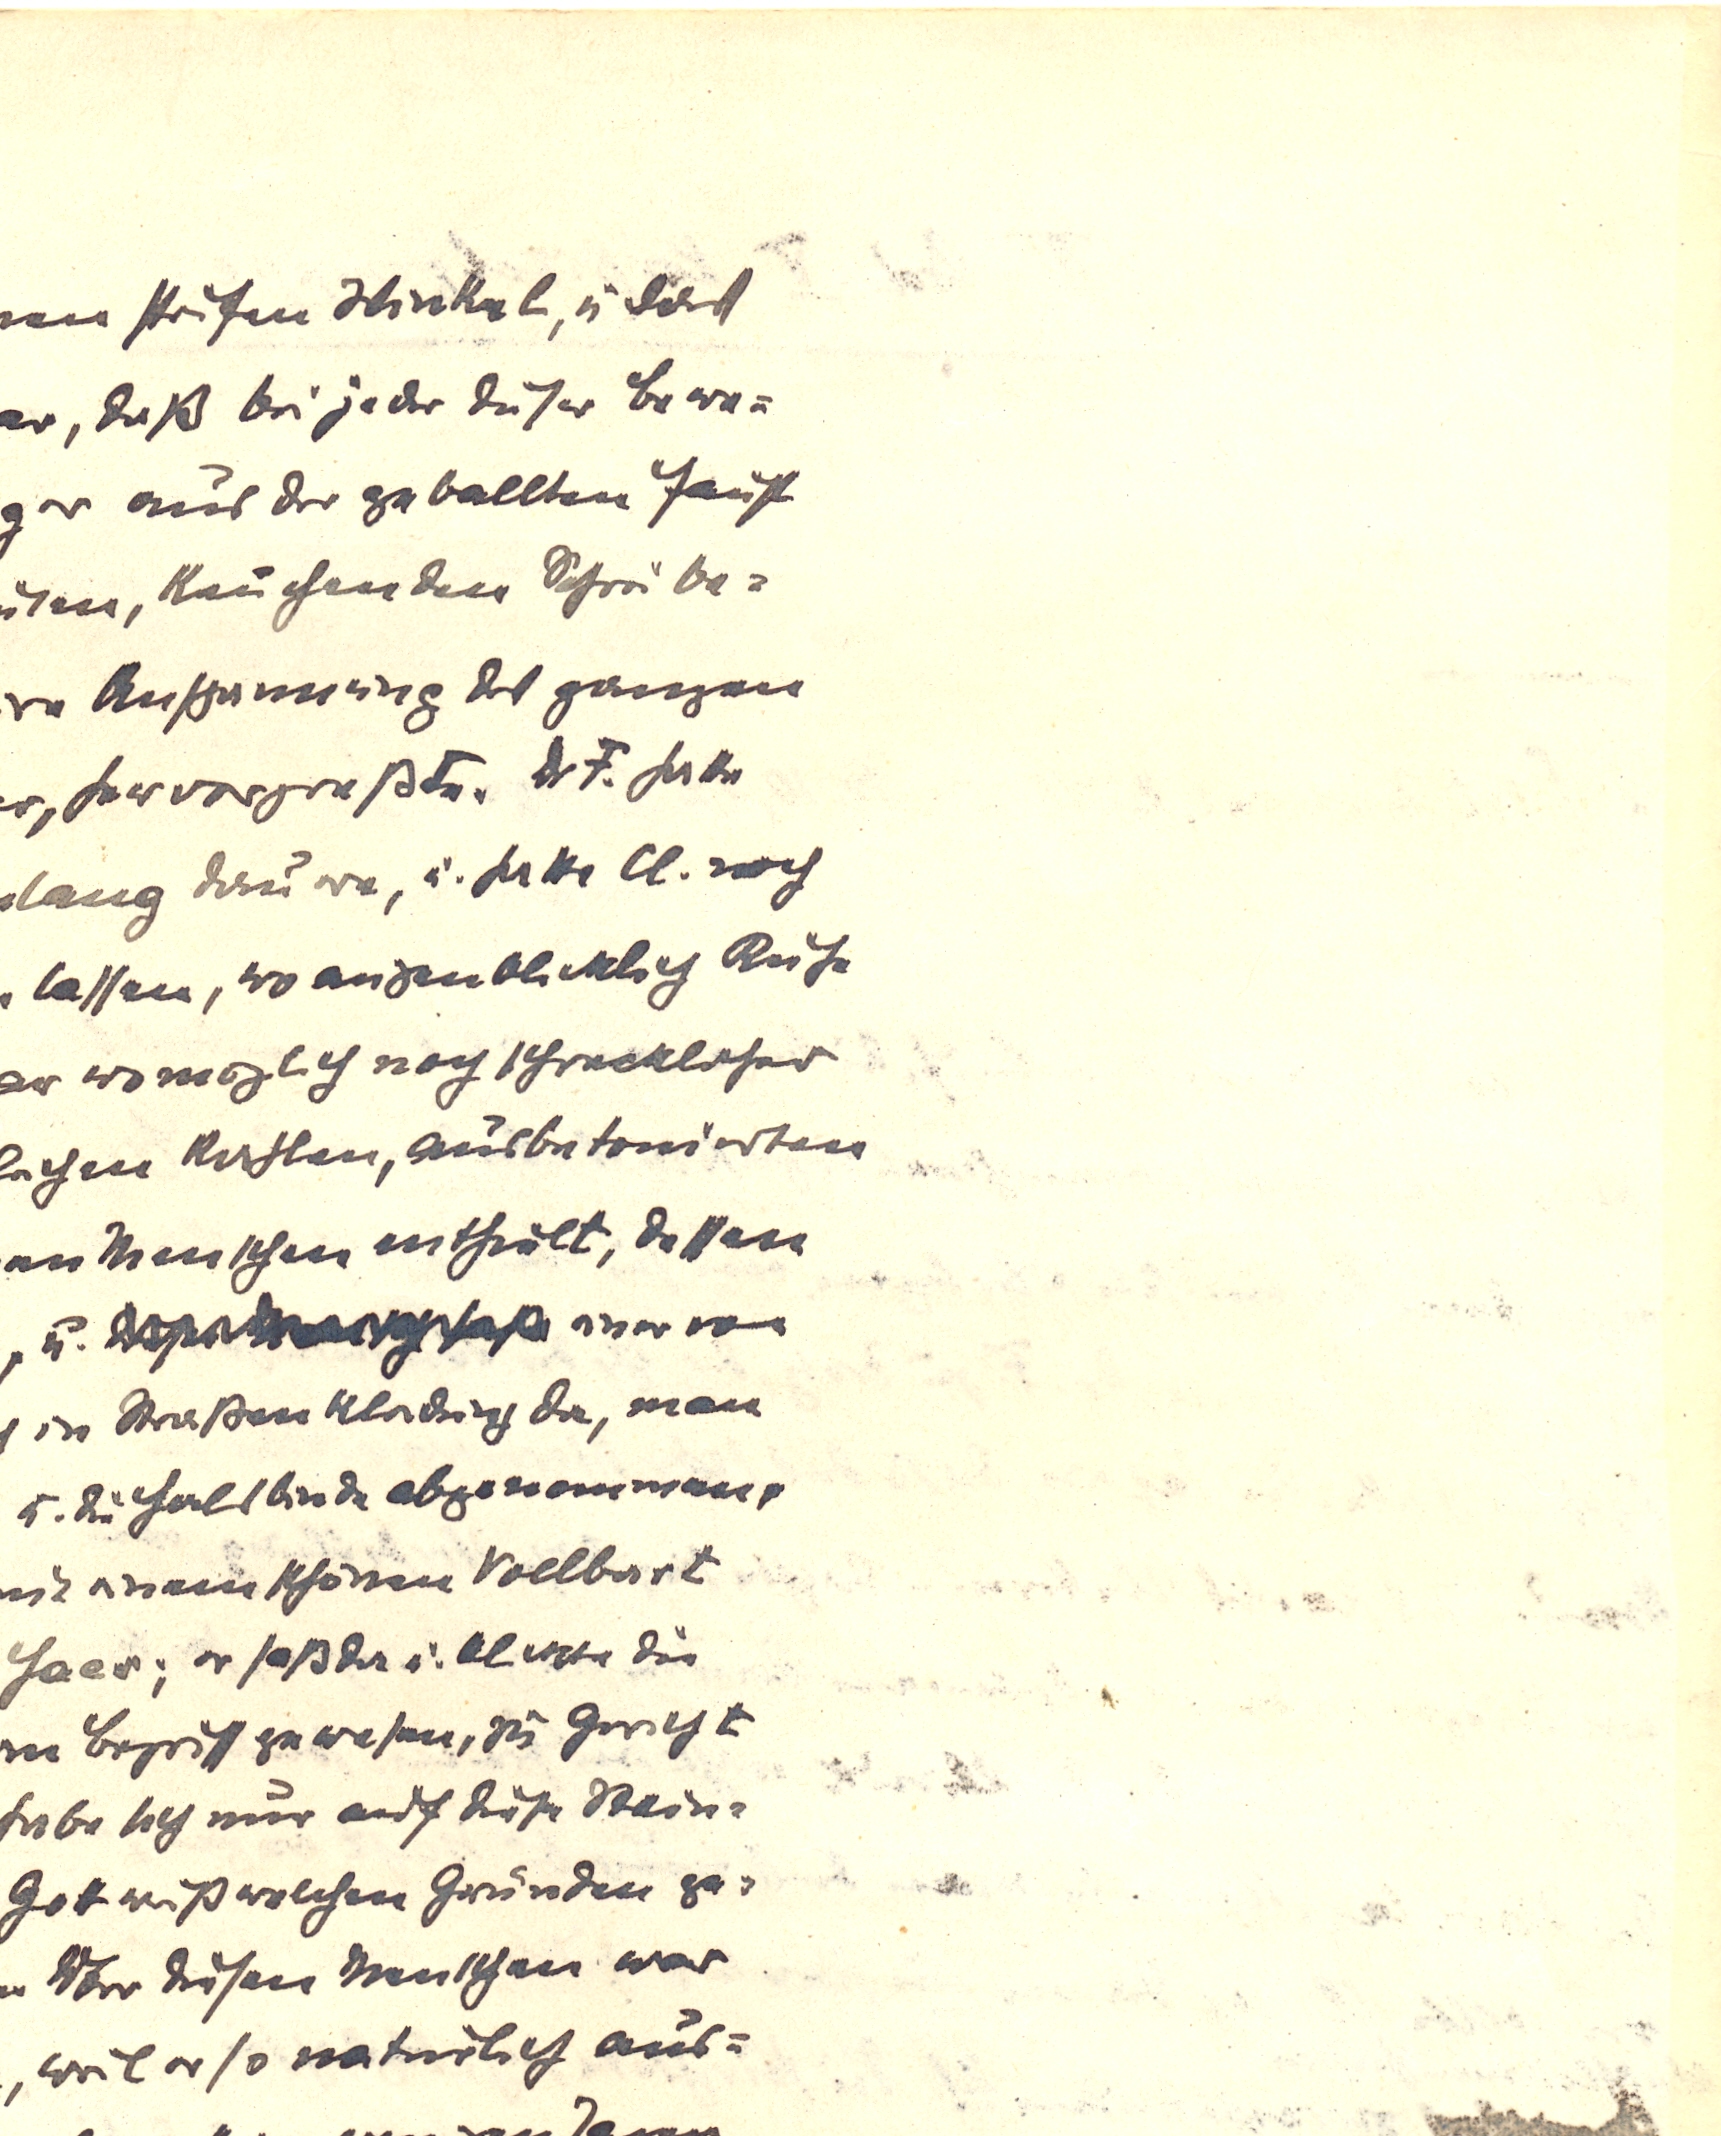 steifen Winkel, u das
, daß bei jeder dieser Bewe=
ger aus der geballten Faust
, keuchenden Schreibe=
Anspannung des ganzen
, hervorpreßte. Dr F. hatte
lang dauere, u. hatte Cl. noch
lassen, wo augenblicklich Ruhe
womöglich noch schrecklicher
lichen kahlen, ausbetonierten
Menschen enthielt, dessen
, u. einer von
in Straßenkleidung da, man
u. die Halsbinde abgenommen,
mit einem schönen Vollbart
Haar; er saß da u. blickte die
im Begriff gewesen, zu Gericht
habe sich nur auf diese Stein=
Gott weiß welchen Gründen ge=
Über diesen Menschen war
, weil er so natürlich aus=